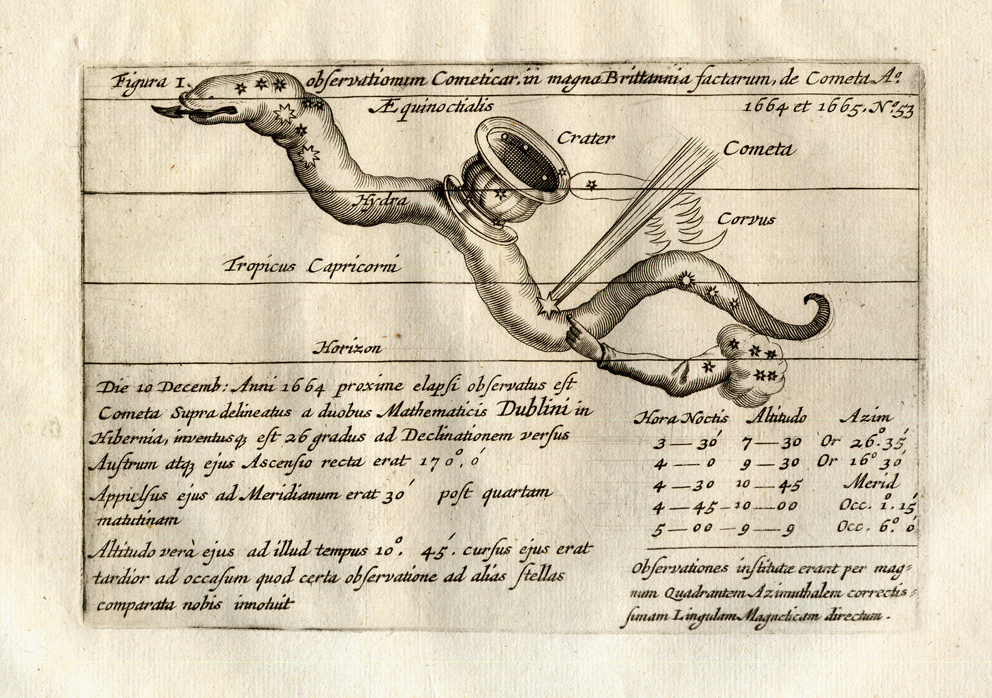 Figura I. observationum Cometicar. in magna Brittannia factarum, de Cometa Aº.
1664 et 1665, Nº 53
Æquinoctialis
Crater
Cometa
Hydra
Corvus
Tropicus Capricorni
Horizon
Die 10 Decemb: Anni 1664 proxime elapsi observatus est
Cometa Supra delineatus a duobus Mathematicis Dublini in
Hibernia, inventusq; est 26 gradus ad Declinationem versus
Austrum atq; ejus Ascensio recta erat 170°, 0'
Appulsus ejus ad Meridianum erat 30' post quartam
matutinam
Altitudo verà ejus ad illud tempus 10°. 45'. cursus ejus erat
tardior ad occasum quod certa observatione ad alias stellas
comparata nobis innotuit
Hora Noctis Altitudo Azim
3 — 30' 7 — 30 Or 26°. 35'
4 — 0 9 — 30 Or 16° 30'
4 — 30 10 — 45 Merid
4 — 45 — 10 — 00 Occ. 1°. 15'
5 — 00 — 9 — 9 Occ. 6°. 0'
Observationes institutæ erant per mag=
num Quadrantem Azimuthalem correctis=
simam Lingulam Magneticam directum.